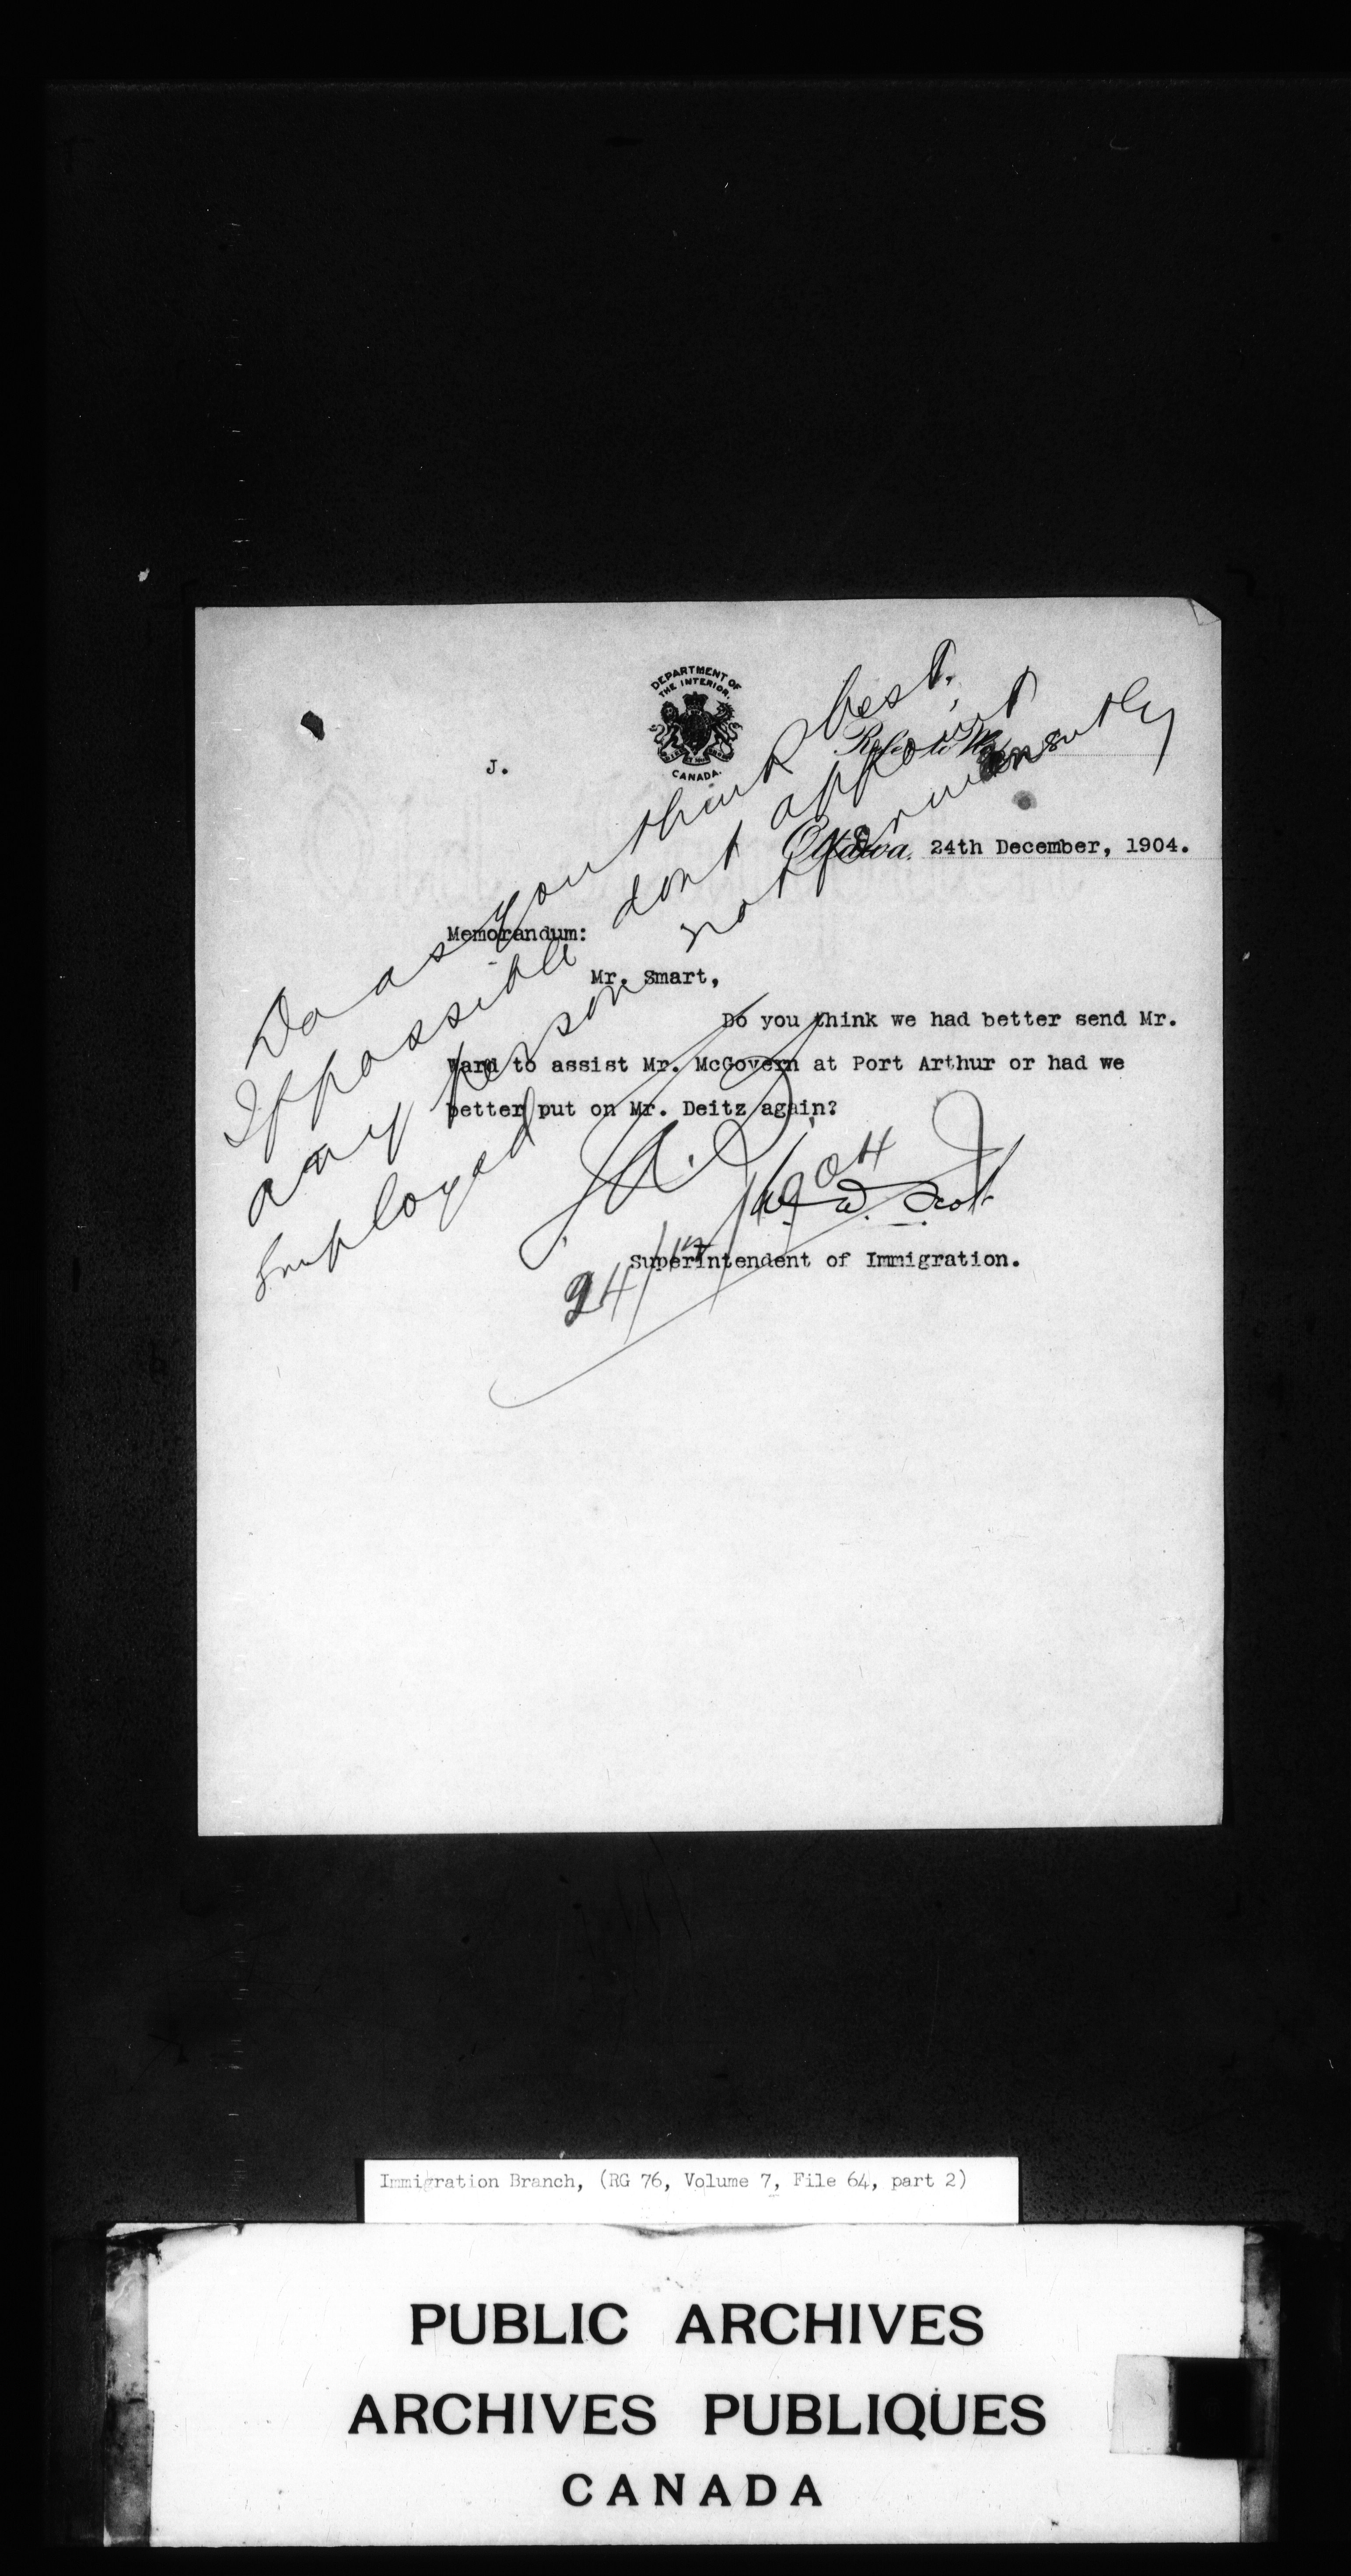 DEPARTMENT OF
THE INTERIOR,
CANADA.
J.
Refer to No.
Ottawa, 24th December, 1904.
Memorandum:
Mr. Smart,
Do you think we had better send Mr.
Ward to assist Mr. McGovern at Port Arthur or had we
better put on Mr. Deitz again?
W. D. Scott
Superintendent of Immigration.
Do as you think best.
If possible dont appoint
any person not permanently
Employed
J.A.S.
24/12/04
Immigration Branch, (RG 76, Volume 7, File 64, part 2)
PUBLIC ARCHIVES
ARCHIVES PUBLIQUES
CANADA